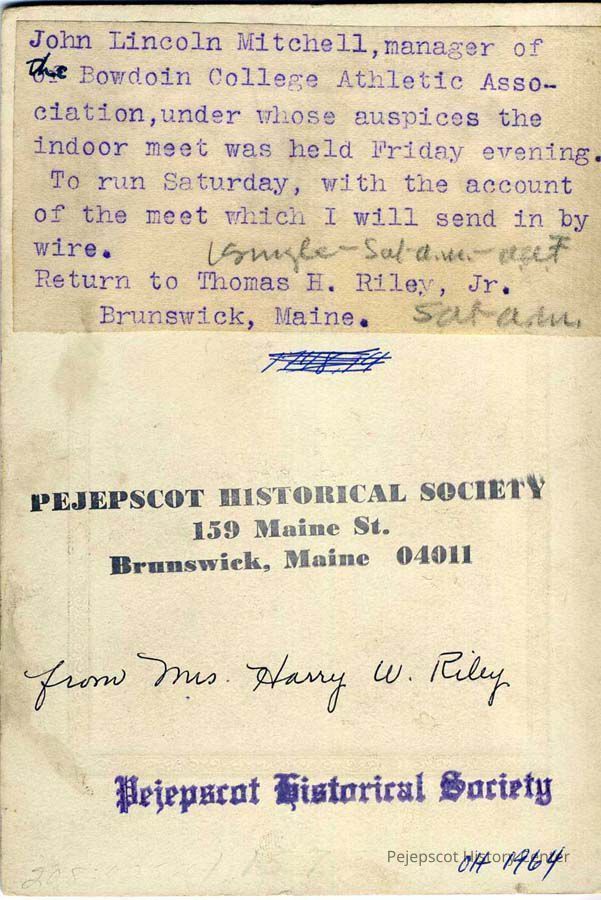 John Lincoln Mitchell, manager of
the Bowdoin College Athletic Asso-
ciation, under whose auspices the
indoor meet was held Friday evening.
To run Saturday, with the account
of the meet which I will send in by
wire. Single - Sat a.m. -
Return to Thomas H. Riley, Jr.
Brunswick, Maine. Sat a.m.
PEJEPSCOT HISTORICAL SOCIETY
159 Maine St.
Brunswick, Maine 04011
from Mrs. Harry W. Riley
Pejepscot Historical Society
Pejepscot History Center
OH 1464